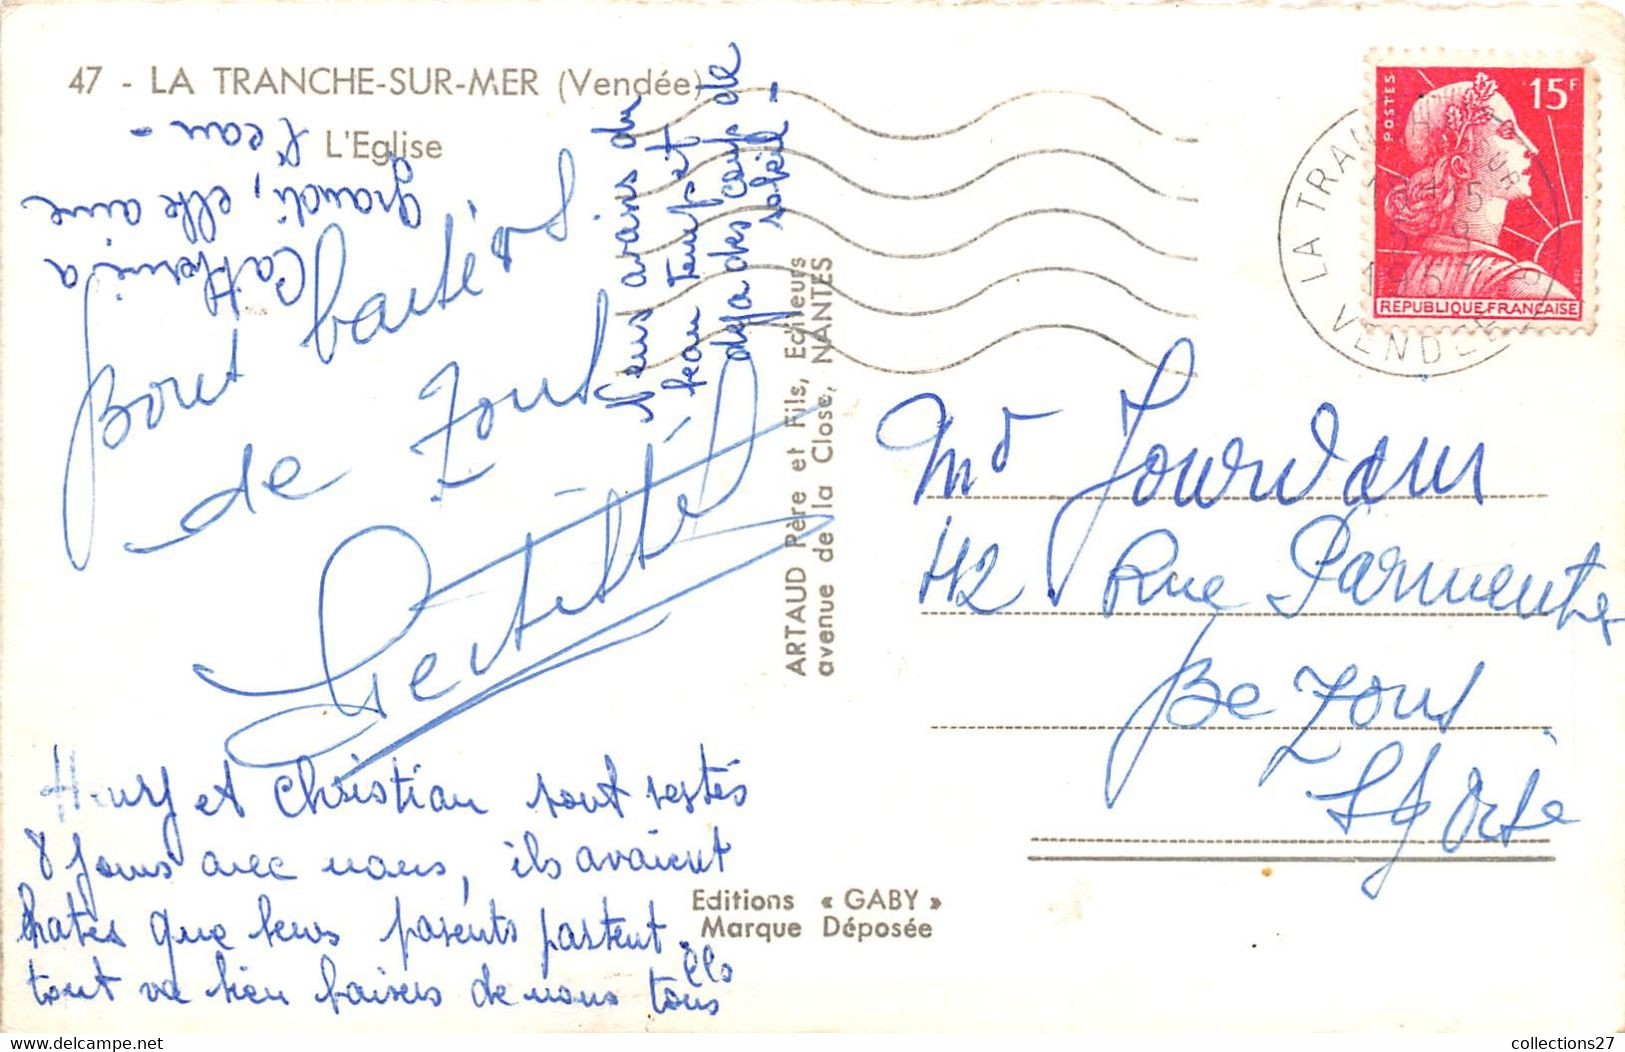 47 - LA TRANCHE-SUR-MER (Vendée)
L'Eglise
Catherine a
grandi, elle aime
l'eau -
Nous avons du
beau temps et
déjà des coups de
soleil -
Bons baisers
de tous
Henry et Christian sont restés
8 jours avec nous, ils avaient
hâtes que leurs parents partent.
tout va bien baisers de nous tous
ARTAUD Père et Fils, Editeurs
avenue de la Close, NANTES
Editions « GABY »
Marque Déposée
POSTES
15F
REPUBLIQUE FRANÇAISE
LA TRANCHE
5 - 9
1957
VENDEE
Md Jourdain
42 Rue Parmentier
Bezons
S et Oise
collections27